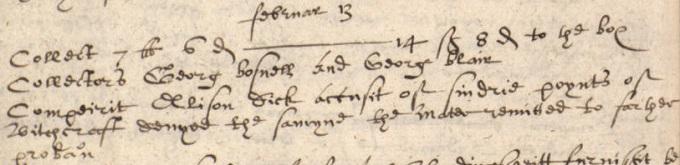 februar 13
Collect 7 lb 6 d 14 ss 8 d to the box
Collectors Georg bosnell and George blair
Compeirit Allison Dick accusit of sindrie poynts of
Witchcraft denyed the samyne the mater remitted to farther